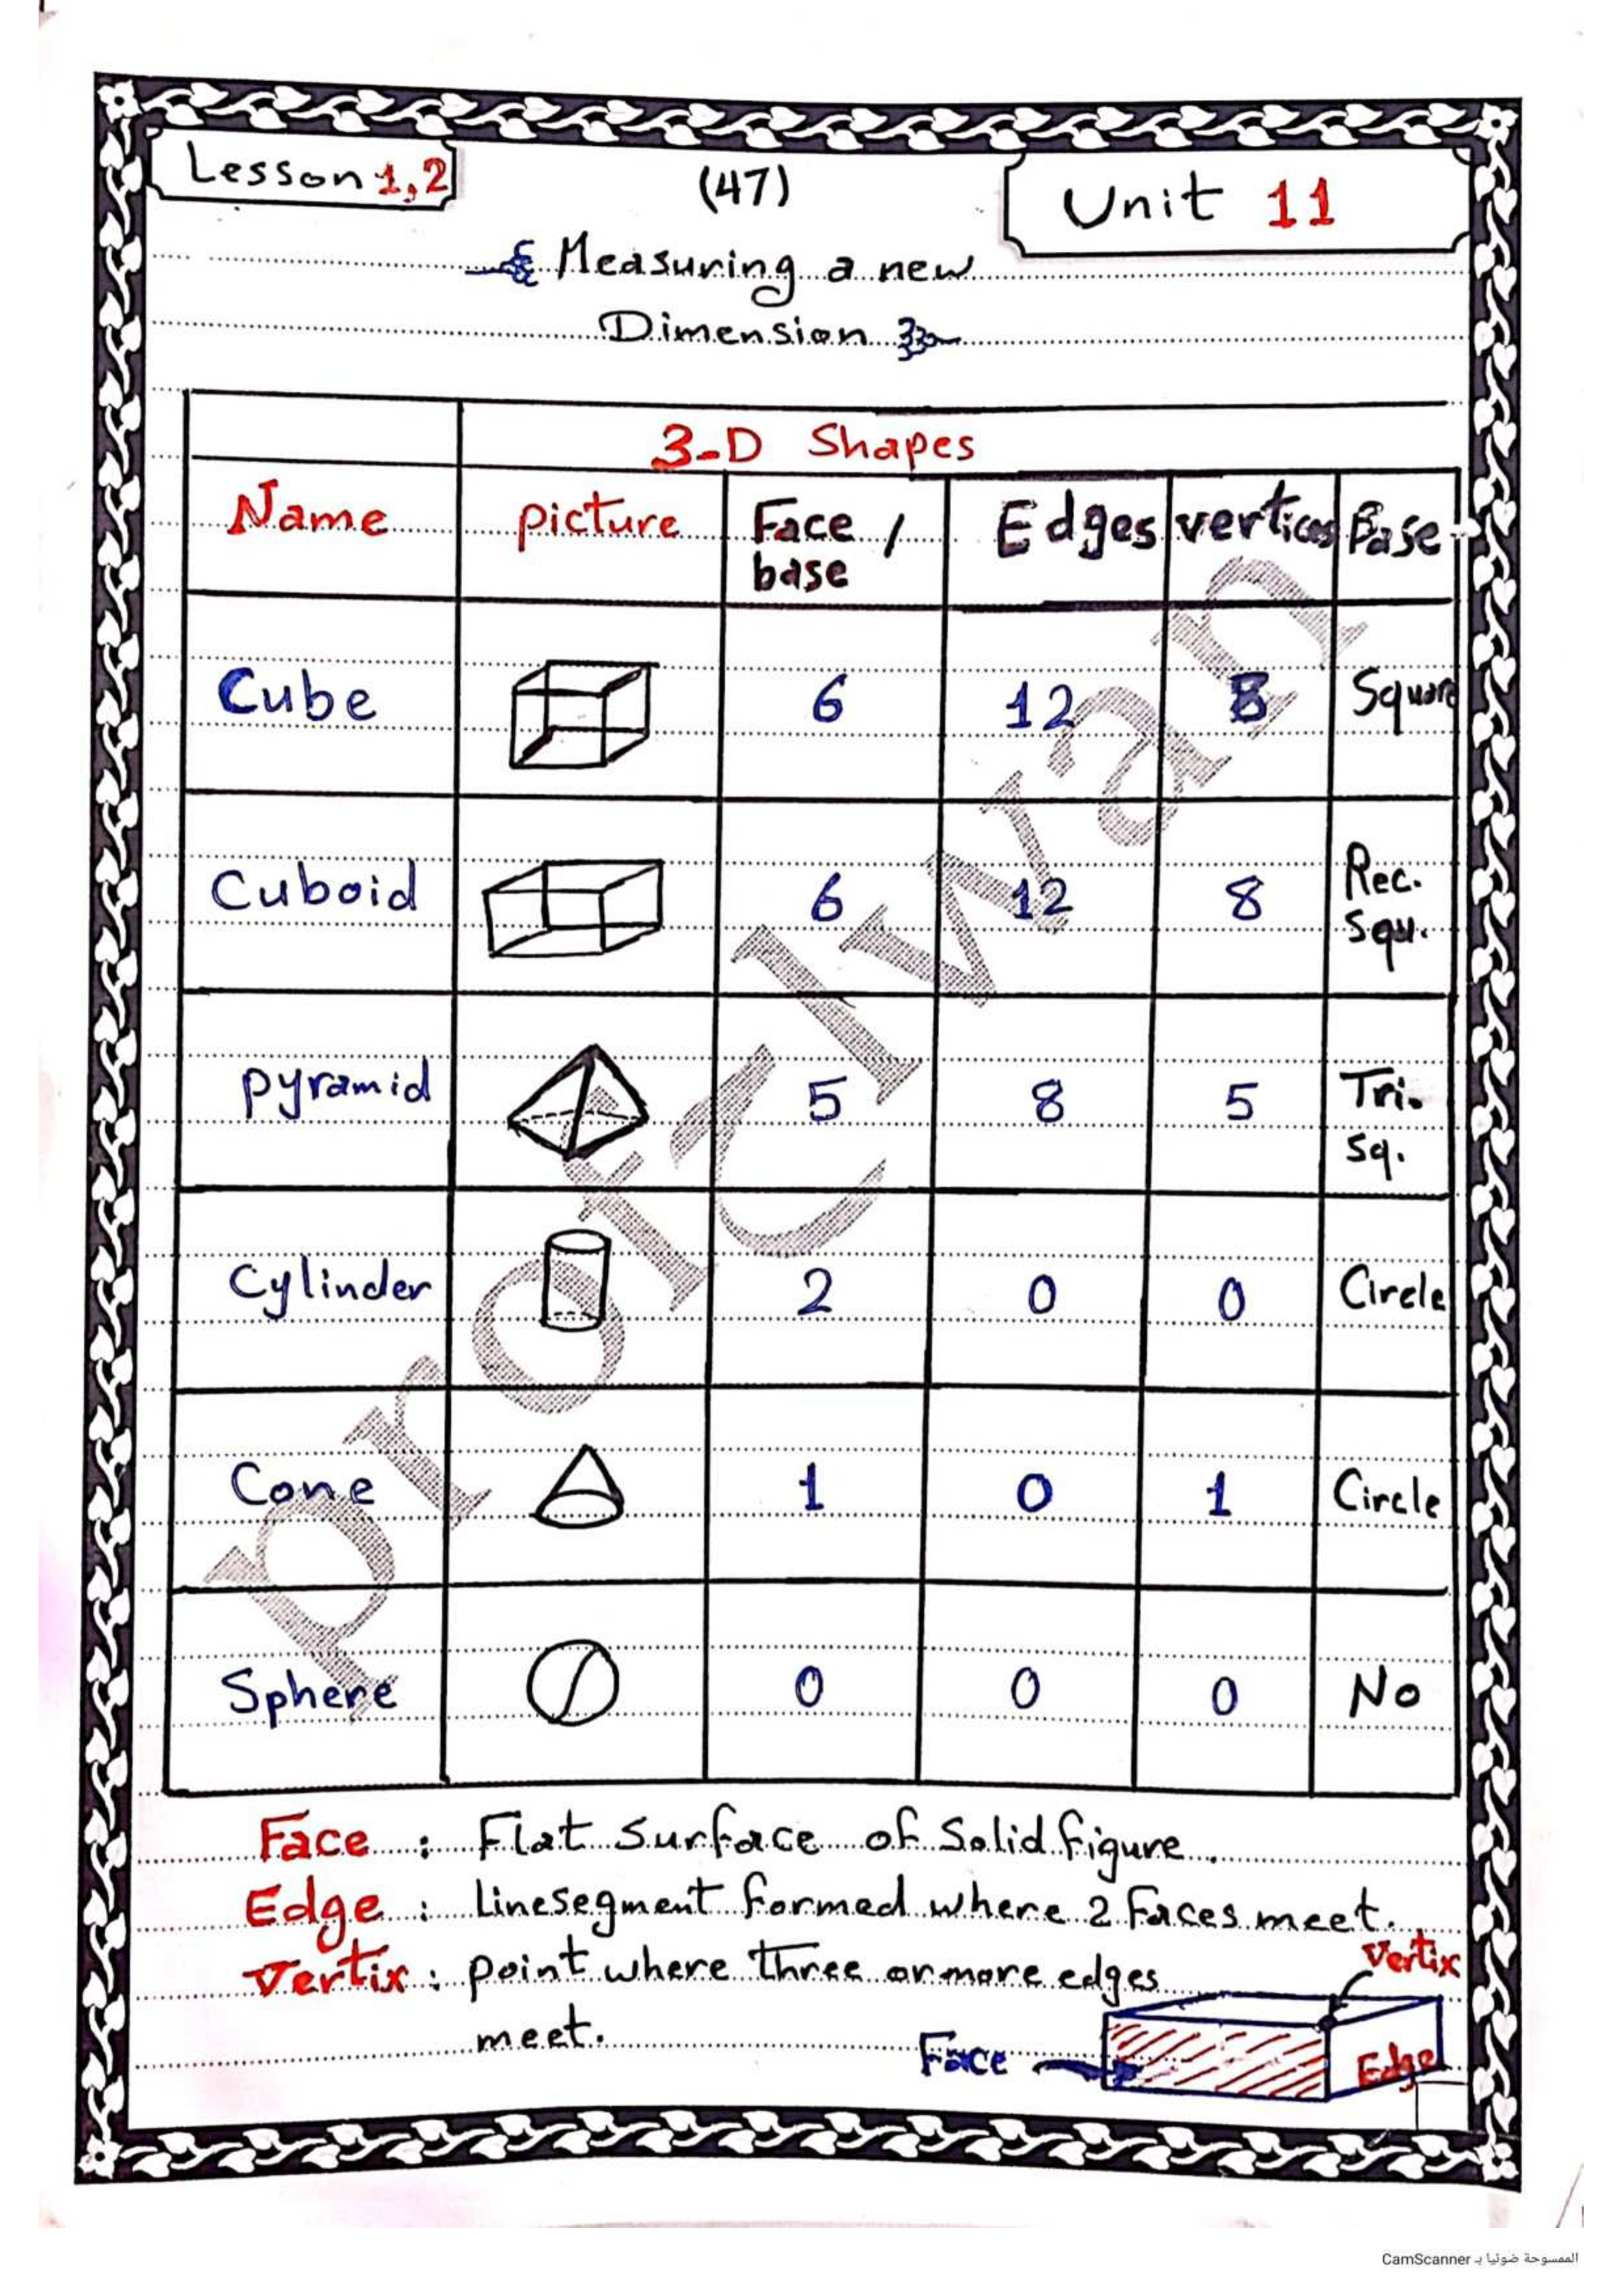 Lesson 1,2
(47)
Unit 11
Measuring a new
Dimension
3-D Shapes
Name picture Face / base Edges vertices Base
Cube 6 12 8 Square
Cuboid 6 12 8 Rec. Squ.
pyramid 5 8 5 Tri. Sq.
Cylinder 2 0 0 Circle
Cone 1 0 1 Circle
Sphere 0 0 0 No
Face : Flat surface of Solid figure.
Edge : linesegment formed where 2 faces meet.
Vertix : point where three or more edges
meet.
Vertix
Face
Edge
CamScanner الممسوحة ضوئيا بـ